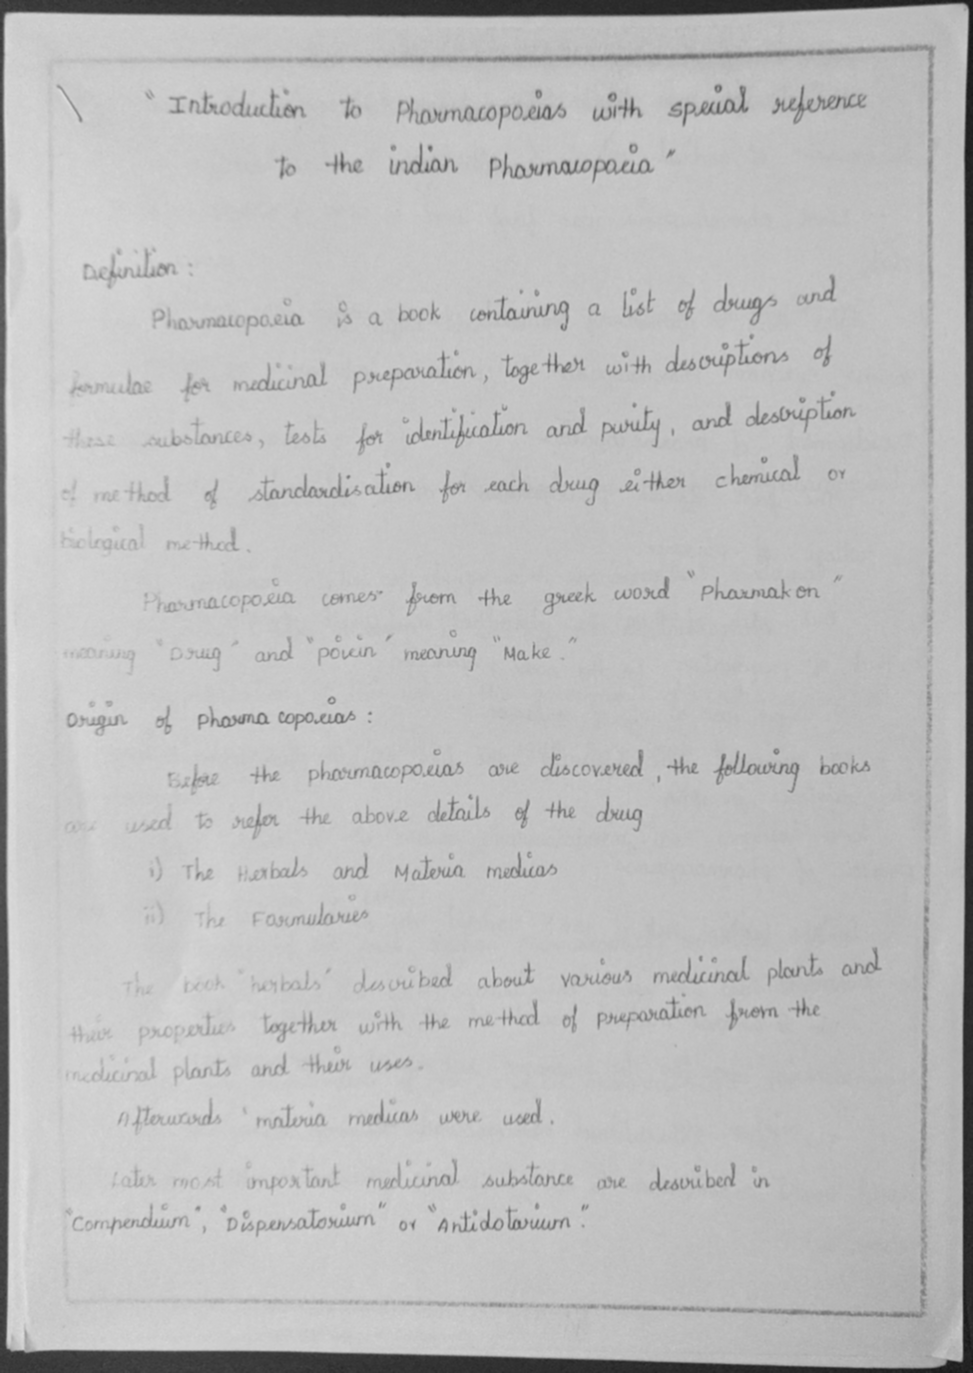 "Introduction to Pharmacopoeias with special reference
to the indian Pharmacopoeia"
Definition :
Pharmacopoeia is a book containing a list of drugs and
formulae for medicinal preparation, together with descriptions of
these substances, tests for identification and purity, and description
of method of standardisation for each drug either chemical or
biological method.
Pharmacopoeia comes from the greek word "Pharmakon"
meaning "Drug" and "poiein" meaning "Make."
Origin of pharma copoeias :
Before the pharmacopoeias are discovered, the following books
are used to refer the above details of the drug
i) The Herbals and Materia medicas
ii) The Formularies
The book "herbals" described about various medicinal plants and
their properties together with the method of preparation from the
medicinal plants and their uses.
Afterwards 'materia medicas were used.
Later most important medicinal substance are described in
"Compendium", "Dispensatorium" or "Antidotarium".